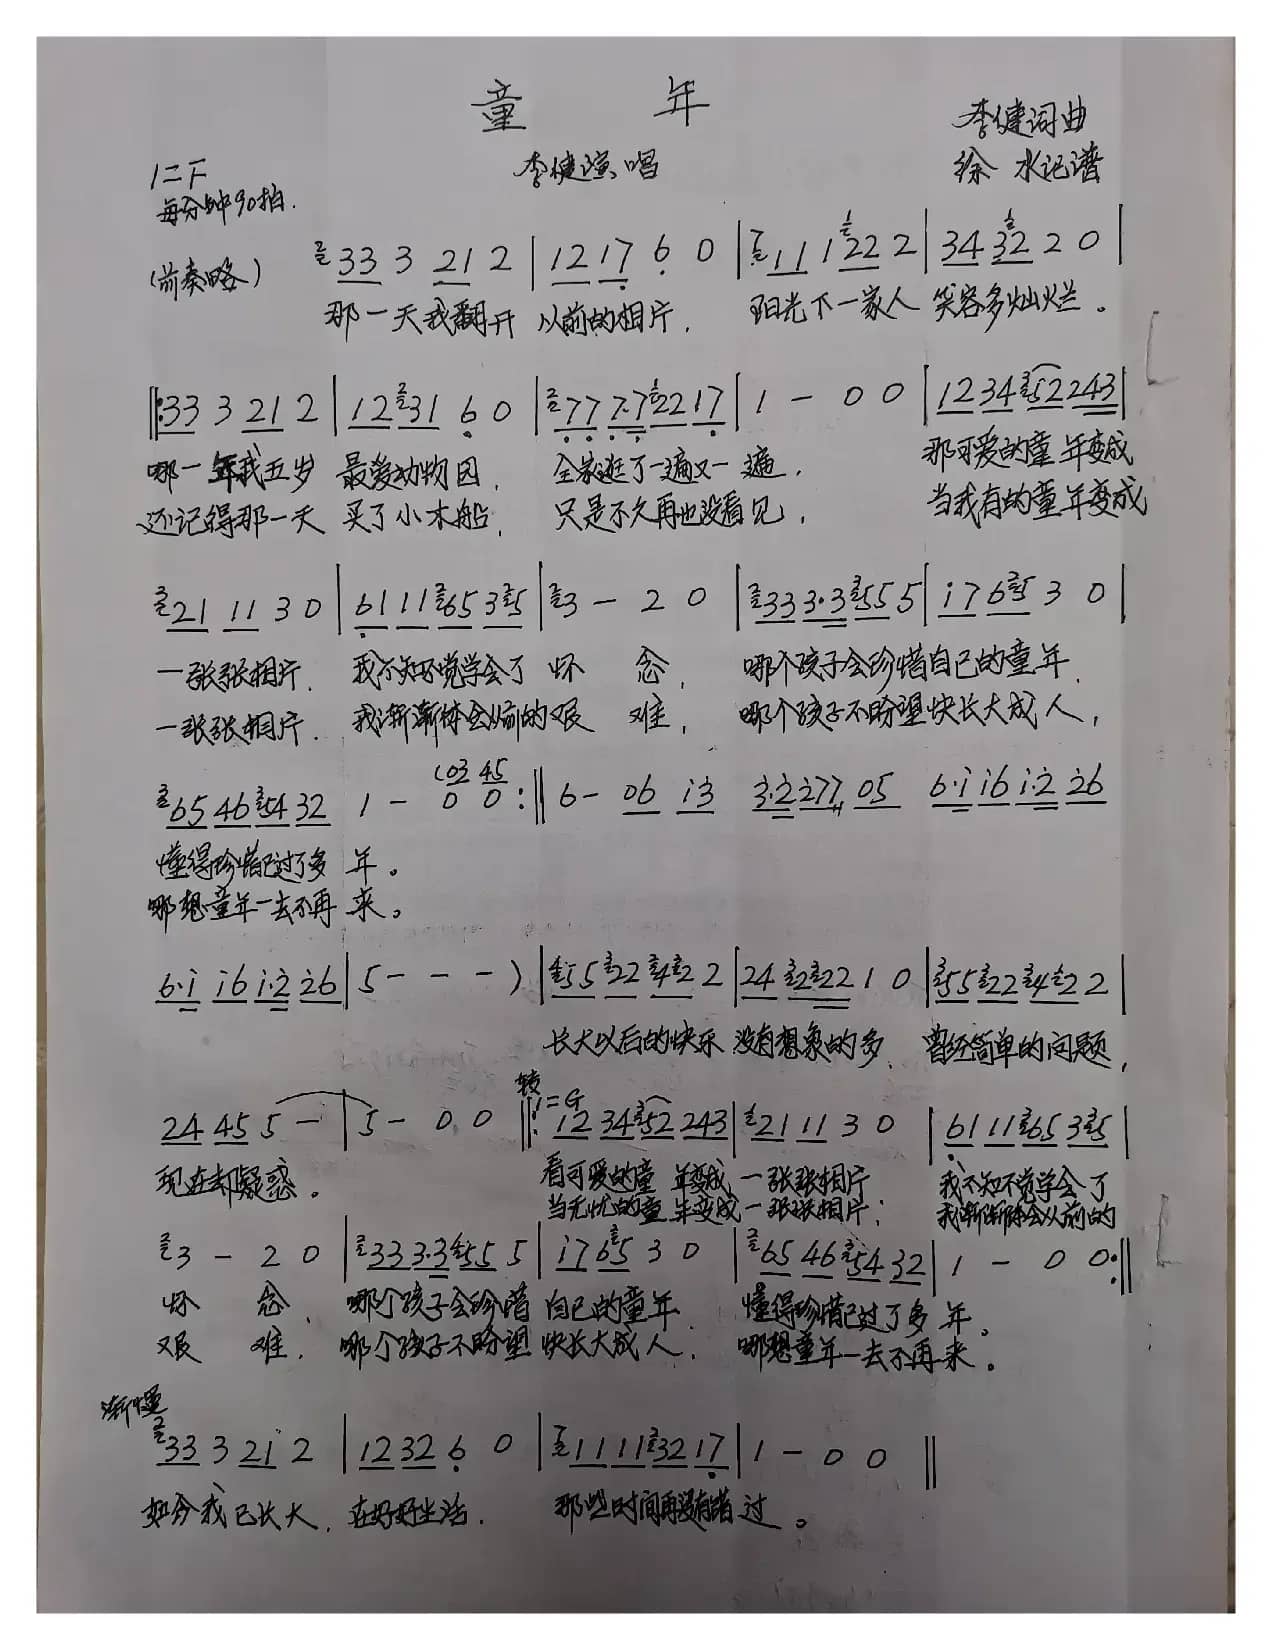 童 年
李健词曲
李健演唱
徐 水记谱
1=F
每分钟90拍.
(前奏略) 33 3 21 2 | 12 17 6 0 | 11 1 22 2 | 34 32 2 0 |
那一天我翻开 以前的相片, 阳光下一家人 笑容多灿烂。
‖: 33 3 21 2 | 12 31 6 0 | 77 7·7 22 17 | 1 - 0 0 | 12 34 52 243 |
哪一年我五岁 最爱动物园, 全家逛了一遍又一遍, 那可爱的童年变成
还记得那一天 买了小木船, 只是不久再也没看见, 当我有的童年变成
21 11 3 0 | 61 11 65 35 | 3 - 2 0 | 33 3·3 55 5 | i7 65 3 0 |
一张张相片, 我不知不觉学会了 怀 念, 哪个孩子会珍惜自己的童年,
一张张相片, 我渐渐体会以前的 艰 难, 哪个孩子不盼望快长大成人,
(03 45
65 46 54 32 1 - 0 0 :‖ 6 - 06 i3 3·2 277 05 6·i i6 i·2 26
懂得珍惜已过了多 年。
哪想童年一去不再 来。
6·i i6 i·2 26 | 5 - - - ) | 55 22 42 2 | 24 2222 1 0 | 55 22 42 2 |
长大以后的快乐 没有想象的多, 曾经简单的问题,
转1=G
24 45 5 - | 5 - 0 0 ‖: 12 34 52 243 | 21 11 3 0 | 61 11 65 35 |
现在却疑惑。 看可爱的童 年变成 一张张相片 我不知不觉学会了
当无忧的童年变成一张张相片; 我渐渐体会以前的
3 - 2 0 | 33 3·3 55 5 | i7 65 3 0 | 65 46 54 32 | 1 - 0 0 :‖
怀 念, 哪个孩子会珍惜 自己的童年, 懂得珍惜已过了多 年。
艰 难, 哪个孩子不盼望 快长大成人, 哪想童年一去不再来。
渐慢
33 3 21 2 | 12 32 6 0 | 11 11 32 17 | 1 - 0 0 ‖
如今我已长大, 在好好生活, 那些时间再没有错过。